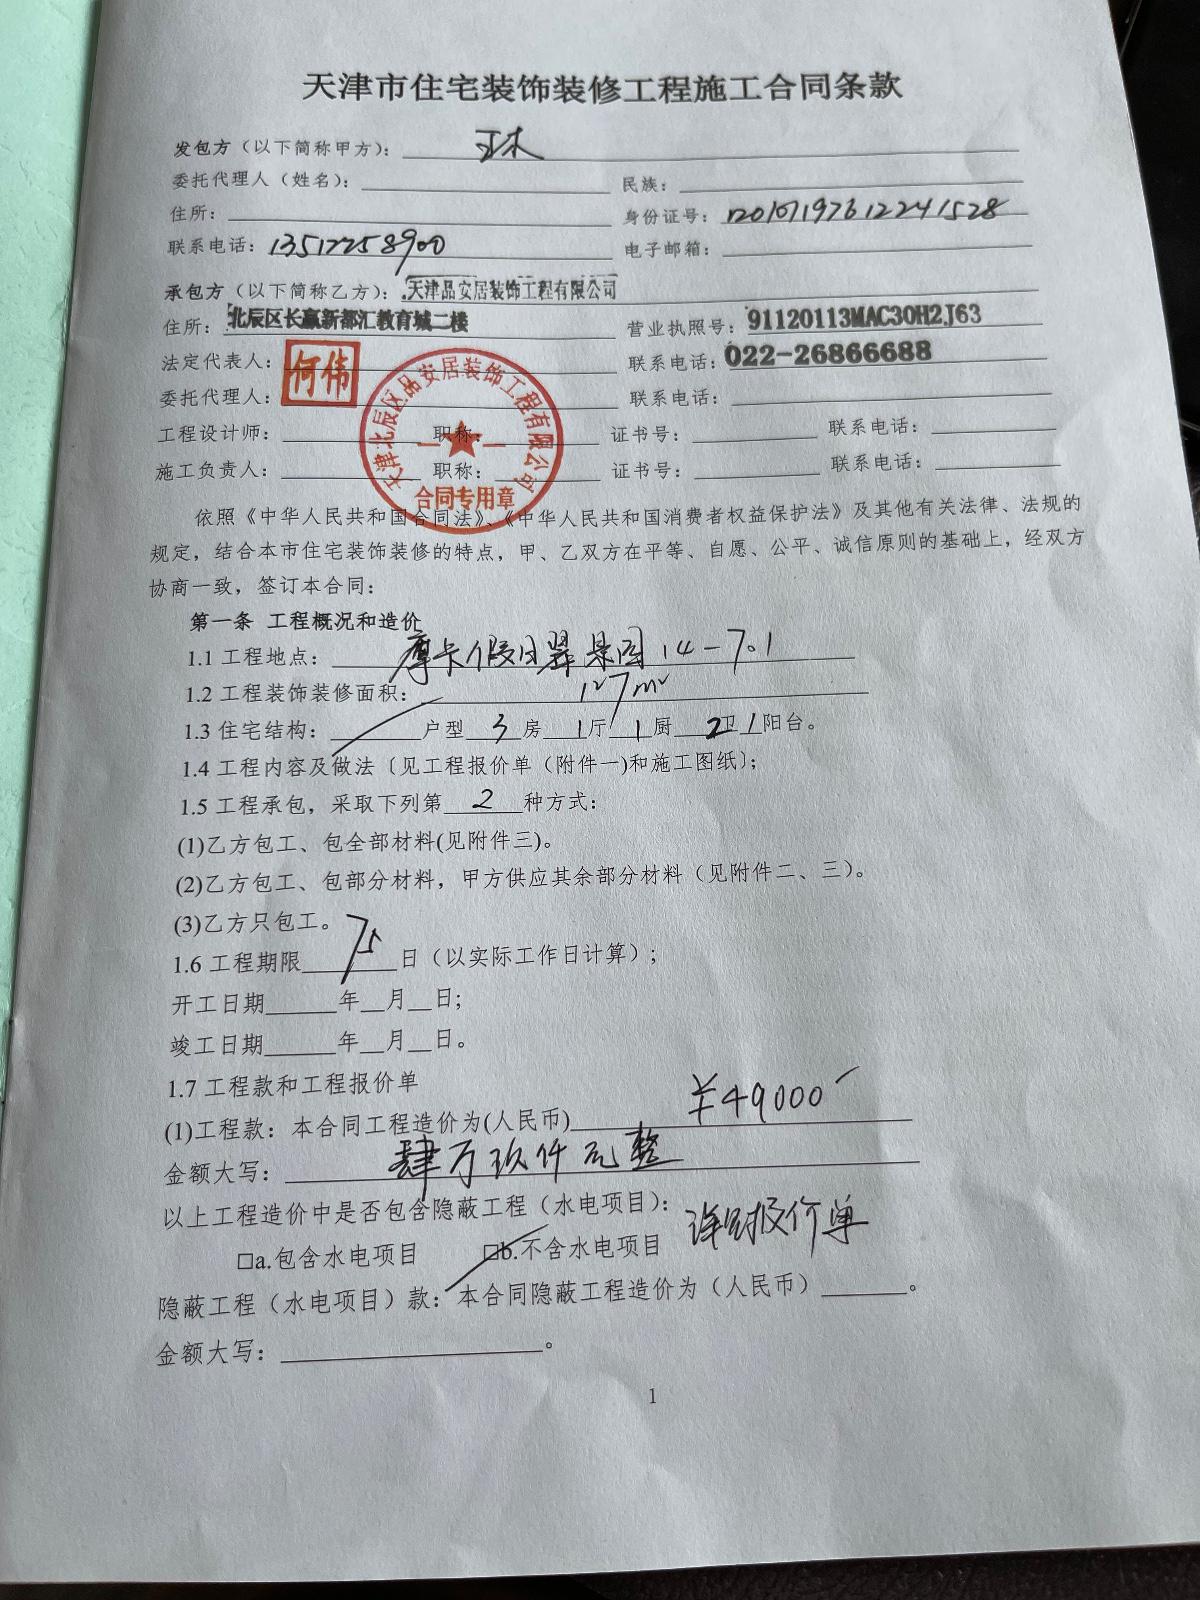 天津市住宅装饰装修工程施工合同条款
发包方（以下简称甲方）：
委托代理人（姓名）： 民族：
住所： 身份证号：120107197612241528
联系电话：13512258900 电子邮箱：
承包方（以下简称乙方）：天津品安居装饰工程有限公司
住所：北辰区长赢新都汇教育城二楼 营业执照号：91120113MAC30H2J63
法定代表人：何伟 联系电话：022-26866688
委托代理人： 联系电话：
工程设计师： 职称： 证书号： 联系电话：
施工负责人： 职称： 证书号： 联系电话：
天津北辰区品安居装饰工程有限公司
合同专用章
依照《中华人民共和国合同法》、《中华人民共和国消费者权益保护法》及其他有关法律、法规的
规定，结合本市住宅装饰装修的特点，甲、乙双方在平等、自愿、公平、诚信原则的基础上，经双方
协商一致，签订本合同：
第一条 工程概况和造价
1.1 工程地点：摩卡假日翠景园14-701
1.2 工程装饰装修面积：127m²
1.3 住宅结构： 户型 3 房 1 厅 1 厨 2 卫 1 阳台。
1.4 工程内容及做法〔见工程报价单（附件一)和施工图纸〕；
1.5 工程承包，采取下列第 2 种方式：
(1)乙方包工、包全部材料(见附件三)。
(2)乙方包工、包部分材料，甲方供应其余部分材料（见附件二、三）。
(3)乙方只包工。
1.6 工程期限 75 日（以实际工作日计算）；
开工日期______年__月__日;
竣工日期______年__月__日。
1.7 工程款和工程报价单
(1)工程款：本合同工程造价为(人民币) ¥49000
金额大写：肆万玖仟元整
以上工程造价中是否包含隐蔽工程（水电项目）：详见报价单
□a.包含水电项目 □b.不含水电项目
隐蔽工程（水电项目）款：本合同隐蔽工程造价为（人民币）_______。
金额大写：____________________。
1